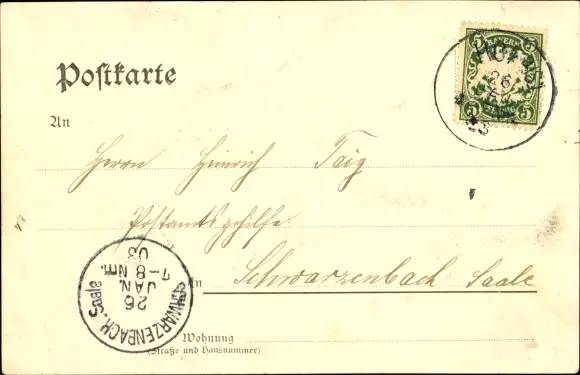 Postkarte
5 BAYERN 5
HOF
26
5 5
An
Herrn Heinrich Taig
Postamtsgehilfe
in Schwarzenbach Saale
SCHWARZENBACH. Saale
26
JAN.
7-8 Nm.
03
Wohnung
(Straße und Hausnummer)